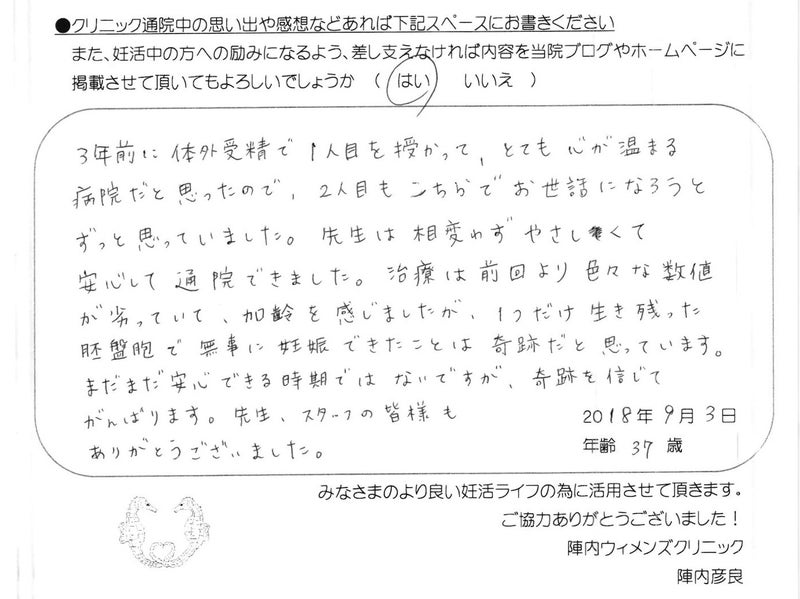 ●クリニック通院中の思い出や感想などあれば下記スペースにお書きください
また、妊活中の方への励みになるよう、差し支えなければ内容を当院ブログやホームページに
掲載させて頂いてもよろしいでしょうか ( はい いいえ )
3年前に体外受精で1人目を授かって、とても心が温まる
病院だと思ったので、2人目もこちらでお世話になろうと
ずっと思っていました。先生は相変わらずやさしくて
安心して通院できました。治療は前回より色々な数値
が劣っていて、加齢を感じましたが、1つだけ生き残った
胚盤胞で無事に妊娠できたことは奇跡だと思っています。
まだまだ安心できる時期ではないですが、奇跡を信じて
がんばります。先生、スタッフの皆様も
ありがとうございました。
2018年9月3日
年齢 37 歳
みなさまのより良い妊活ライフの為に活用させて頂きます。
ご協力ありがとうございました！
陣内ウィメンズクリニック
陣内彦良